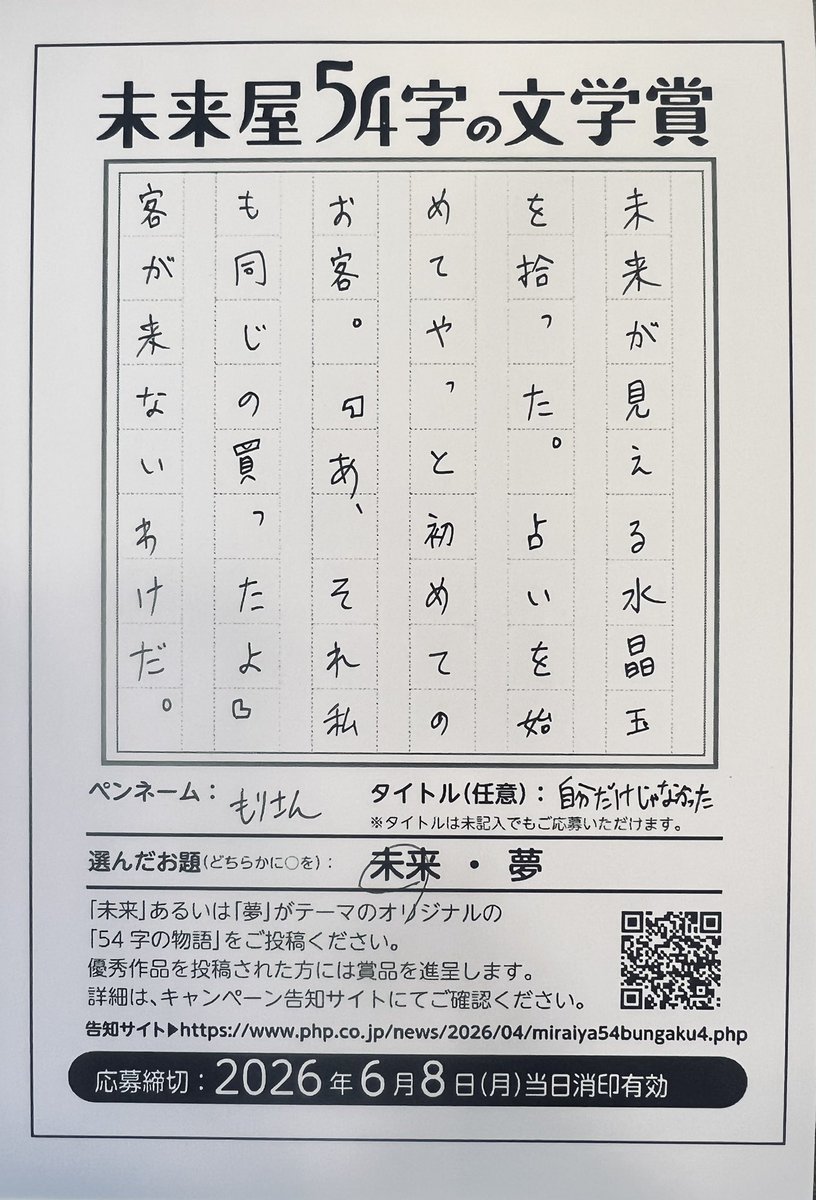 未来屋54字の文学賞
未来が見える水晶玉
を拾った。占いを始
めてやっと初めての
お客。『あ、それ私
も同じの買ったよ』
客が来ないわけだ。
ペンネーム：もりさん
タイトル(任意)：自分だけじゃなかった
※タイトルは未記入でもご応募いただけます。
選んだお題(どちらかに○を)：未来・夢
「未来」あるいは「夢」がテーマのオリジナルの
「54字の物語」をご投稿ください。
優秀作品を投稿された方には賞品を進呈します。
詳細は、キャンペーン告知サイトにてご確認ください。
告知サイト▶https://www.php.co.jp/news/2026/04/miraiya54bungaku4.php
応募締切：2026年6月8日(月)当日消印有効